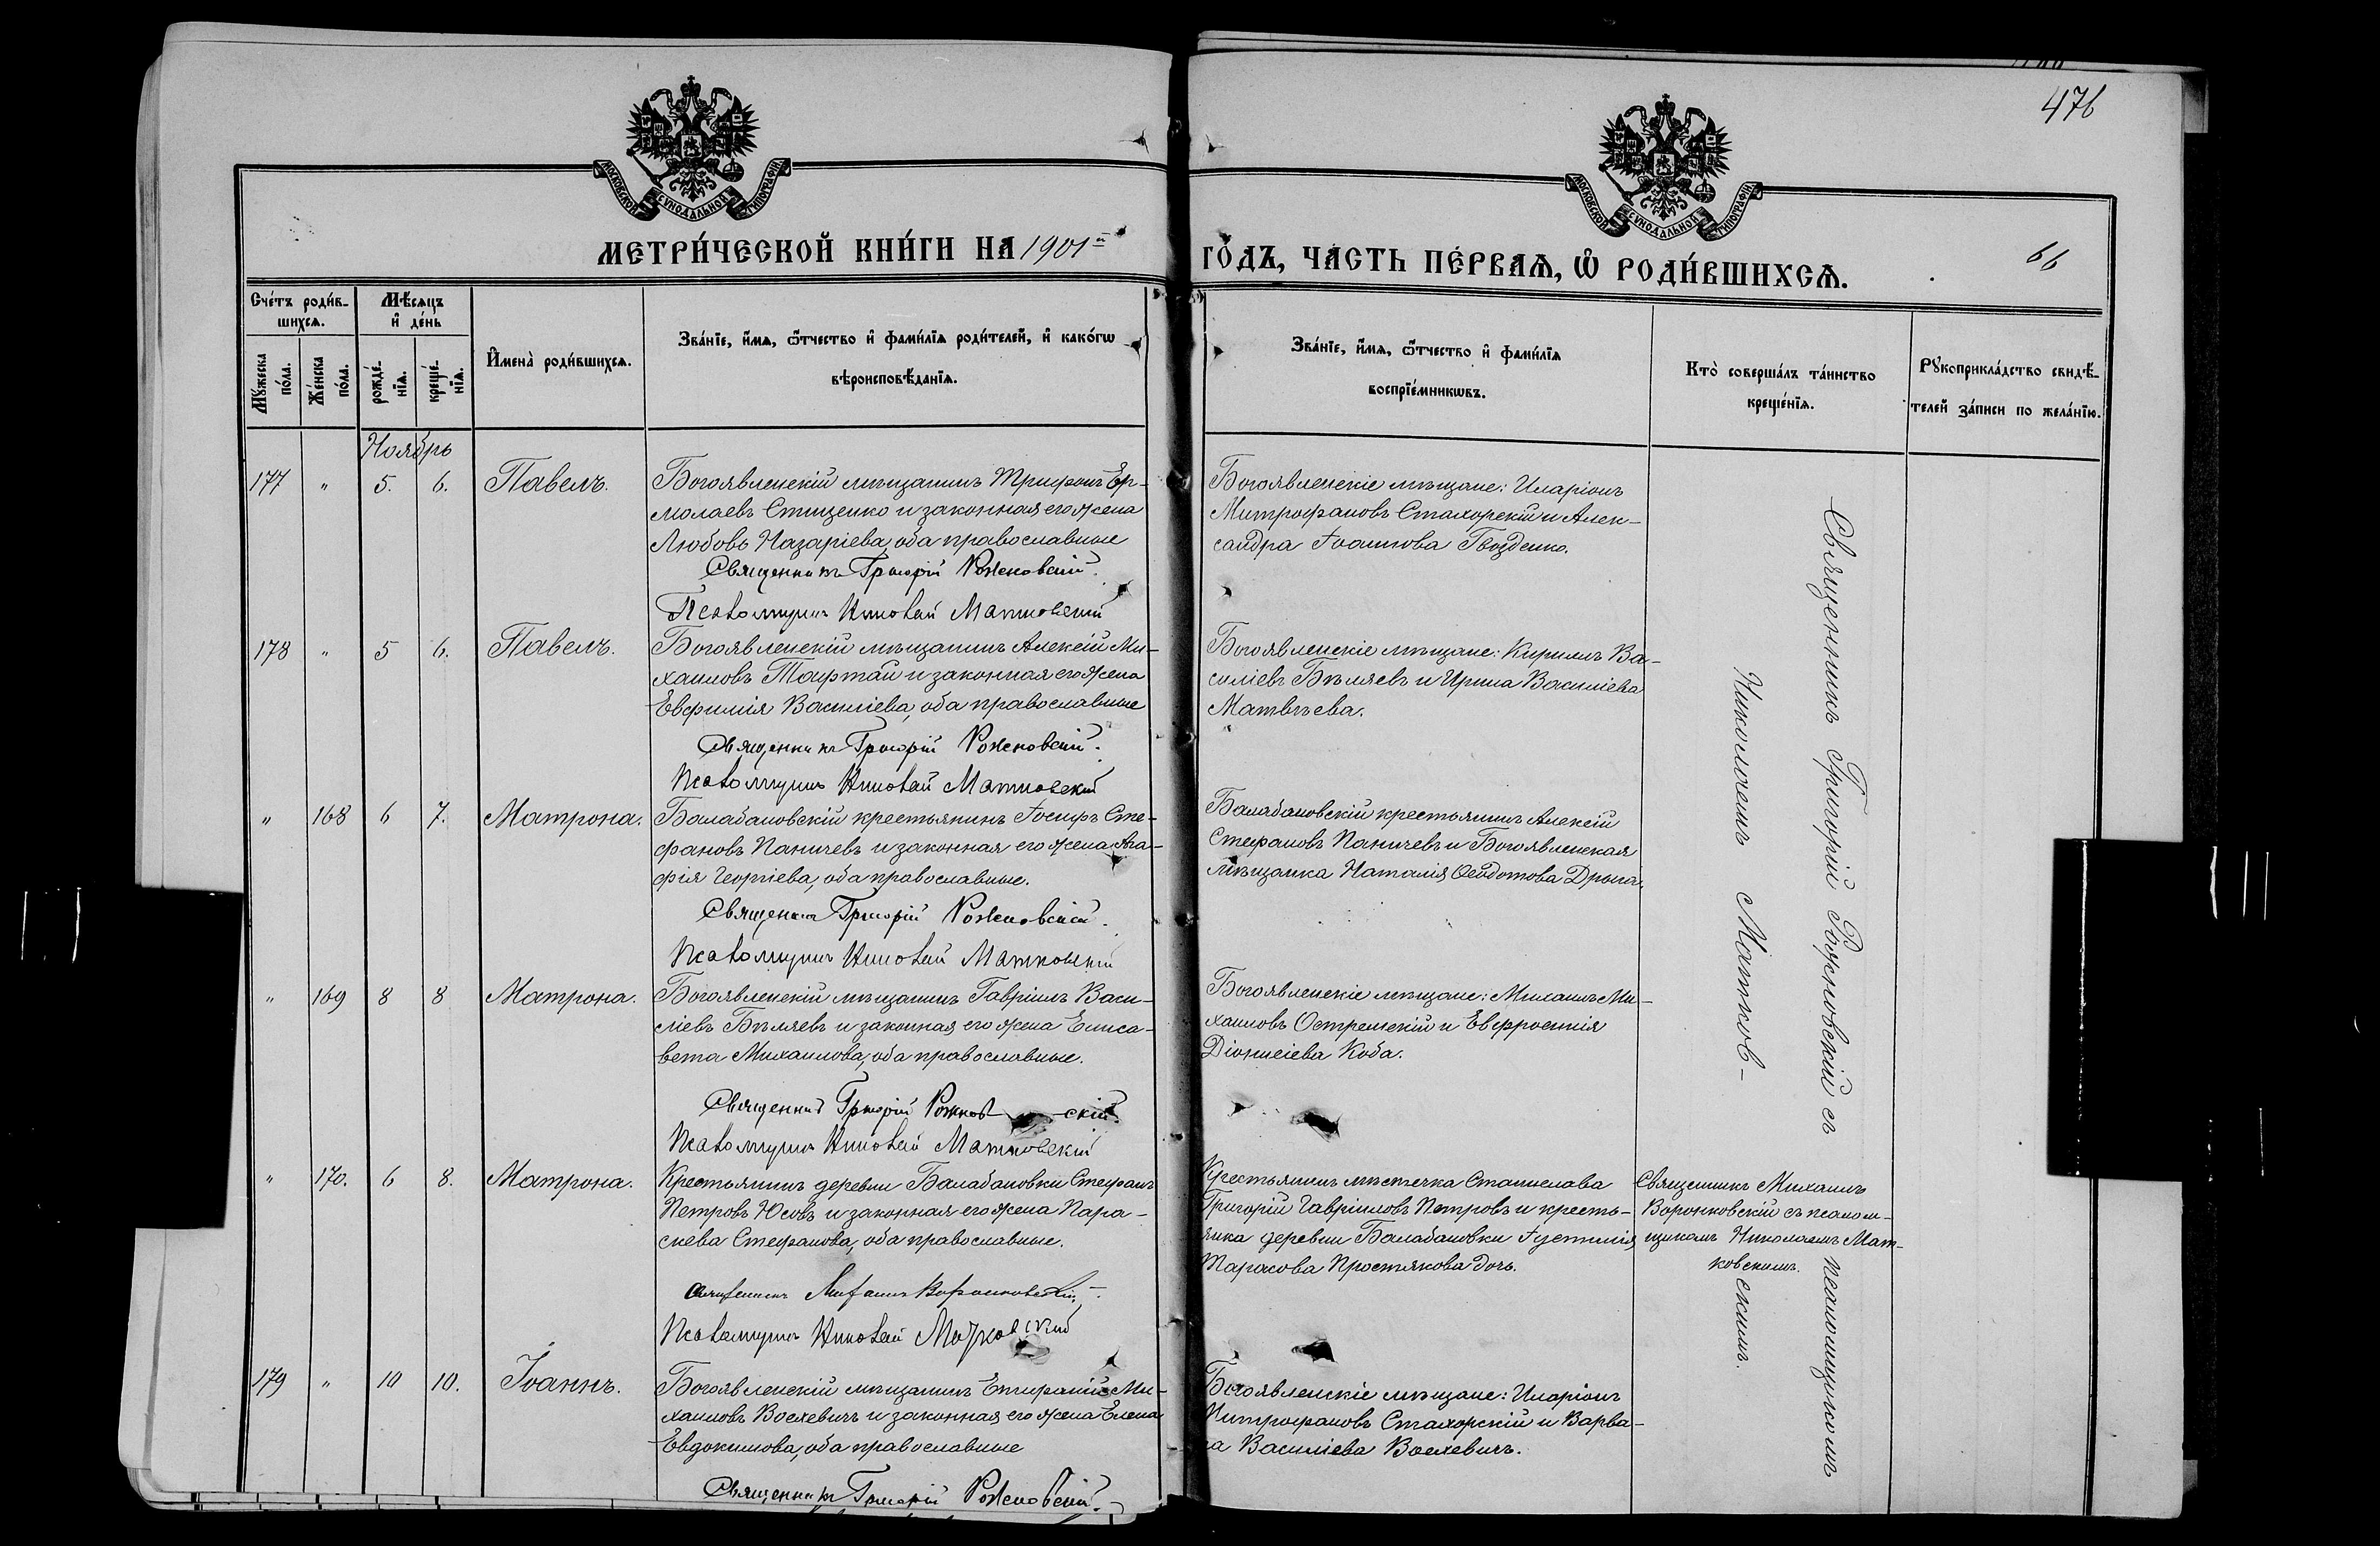 476
МОСКОВСКОЙ СУНОДАЛЬНОЙ ТИПОГРАФІИ
МОСКОВСКОЙ СУНОДАЛЬНОЙ ТИПОГРАФІИ
МЕТРИ́ЧЕСКОЙ КНИ́ГИ НА 1901й
ГО́ДЪ, ЧА́СТЬ ПЕ́РВАѦ, Ѽ РОДИ́ВШИХСѦ.
66
Сче́тъ роди́в-
шихсѧ.
Мꙋ́жеска
по́ла.
Же́нска
по́ла.
Мѣ́сѧцъ
и҆ де́нь
рожде́-
нїѧ.
креще́-
нїѧ.
И҆мена̀ роди́вшихсѧ.
Зва́нїе, и҆́мѧ, ѻ҆́тчество и҆ фами́лїѧ роди́телей, и҆ како́гѡ
вѣроисповѣ́данїѧ.
Зва́нїе, и҆́мѧ, ѻ҆́тчество и҆ фами́лїѧ
воспрїе́мникѡвъ.
Кто̀ соверша́лъ та́инство
креще́нїѧ.
Рꙋкоприкла́дство свидѣ́-
телей за́писи по жела́нїю.
Ноябрь
177 " 5. 6. Павелъ.
Богоявленскій мѣщанинъ Трифонъ Ер-
молаевъ Стиценко и законная его жена
Любовь Назаріева, оба православные
Священникъ Григорій Рожновскій.
Псаломщикъ Николай Матковскій
Богоявленскіе мѣщане: Иларіонъ
Митрофановъ Стахорскій и Алек-
сандра Іоаннова Гвозденко.
178 " 5 6. Павелъ.
Богоявленскій мѣщанинъ Алексій Ми-
хаиловъ Тафтай и законная его жена
Евфимія Василіева, оба православные
Священникъ Григорій Рожновскій.
Псаломщикъ Николай Матковскій
Богоявленскіе мѣщане: Кириллъ Ва-
силіевъ Бѣляевъ и Ирина Василіева
Матвѣева.
" 168 6 7. Матрона.
Балабановскій крестьянинъ Іосифъ Сте-
фановъ Паничевъ и законная его жена Ага-
фія Георгіева, оба православные.
Священникъ Григорій Рожновскій.
Псаломщикъ Николай Матковскій
Балабановскій крестьянинъ Алексій
Стефановъ Паничевъ и Богоявленская
мѣщанка Наталія Ѳеодотова Дрыга.
" 169 8 8 Матрона.
Богоявленскій мѣщанинъ Гавріилъ Васи-
ліевъ Бѣляевъ и законная его жена Елиса-
вета Михаилова, оба православные.
Священникъ Григорій Рожновскій.
Псаломщикъ Николай Матковскій
Богоявленскіе мѣщане: Михаилъ Ми-
хаиловъ Остремскій и Евфросинія
Діонисіева Коба.
" 170. 6 8. Матрона.
Крестьянинъ деревни Балабановки Стефанъ
Петровъ Юсовъ и законная его жена Пара-
скева Стефанова, оба православные.
Священникъ Михаилъ Воронковскій.
Псаломщикъ Николай Матковскій
Крестьянинъ мѣстечка Станислава
Григорій Гавріиловъ Петровъ и кресть-
янка деревни Балабановки Іустинія
Тарасова Простякова дочь.
Священникъ Михаилъ
Воронковскій съ псалом-
щикомъ Николаемъ Мат-
ковскимъ.
179 " 10 10. Іоаннъ.
Богоявленскій мѣщанинъ Епифаній Ми-
хаиловъ Воехевичъ и законная его жена Елена
Евдокимова, оба православные
Священникъ Григорій Рожновскій.
Богоявленскіе мѣщане: Иларіонъ
Митрофановъ Стахорскій и Варва-
ра Василіева Воехевичъ.
Священникъ Григорій Рожновскій съ псаломщикомъ
Николаемъ Матков-скимъ.